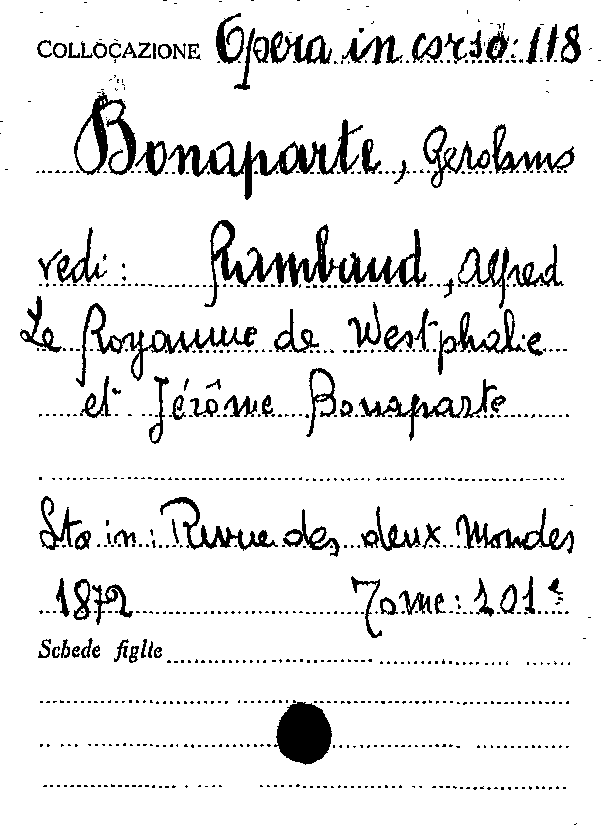 COLLOCAZIONE Opera in corso: 118
Bonaparte, Gerolamo
vedi: Rambaud, Alfred
Le Royaume de Westphalie
et Jérôme Bonaparte
Sta in: Revue des deux Mondes
1872 Tome: 101e
Schede figlie